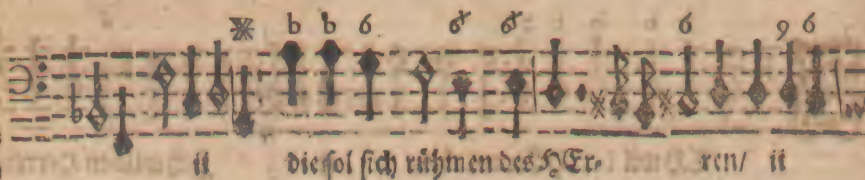 b b 6 6 6 6 9 6
ij die sol sich rühmen des HErren/ ij